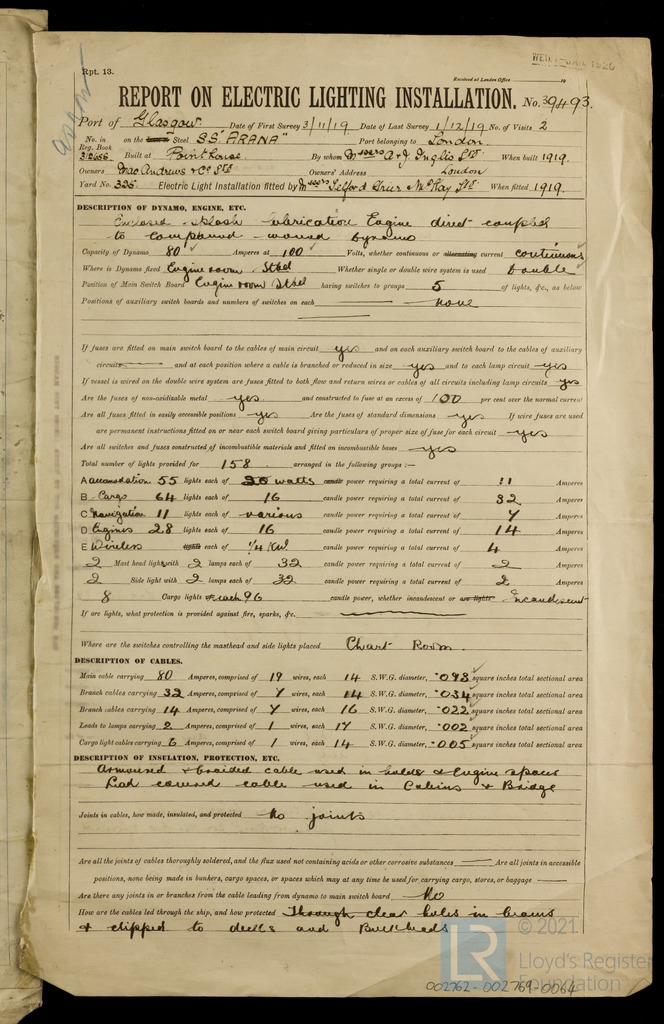 Rpt. 13.
Received at London Office 19
REPORT ON ELECTRIC LIGHTING INSTALLATION. No. 39493.
Port of Glasgow Date of First Survey 3/11/19 Date of Last Survey 1/12/19 No. of Visits 2
No. in Reg. Book on the Steel SS "ARANA" Port belonging to London.
Built at Pointhouse By whom Messrs A & J Inglis Ltd When built 1919.
Owners MacAndrews & Co Ltd Owners' Address London
Yard No. 325. Electric Light Installation fitted by Messrs Telford Grier McKay Ltd When fitted 1919.
DESCRIPTION OF DYNAMO, ENGINE, ETC.
Enclosed splash lubrication Engine direct coupled
to Compound wound Dynamo
Capacity of Dynamo 80 Amperes at 100 Volts, whether continuous or alternating current continuous
Where is Dynamo fixed Engine room Stbd Whether single or double wire system is used Double
Position of Main Switch Board Engine room Stbd having switches to groups 5 of lights, &c., as below
Positions of auxiliary switch boards and numbers of switches on each none
If fuses are fitted on main switch board to the cables of main circuit yes and on each auxiliary switch board to the cables of auxiliary
circuits and at each position where a cable is branched or reduced in size yes and to each lamp circuit yes
If vessel is wired on the double wire system are fuses fitted to both flow and return wires or cables of all circuits including lamp circuits yes
Are the fuses of non-oxidizable metal yes and constructed to fuse at an excess of 100 per cent over the normal current
Are all fuses fitted in easily accessible positions yes Are the fuses of standard dimensions yes If wire fuses are used
are permanent instructions fitted on or near each switch board giving particulars of proper size of fuse for each circuit yes
Are all switches and fuses constructed of incombustible materials and fitted on incombustible bases yes
Total number of lights provided for 158 arranged in the following groups :—
A accomodation 55 lights each of 20 watts candle power requiring a total current of 11 Amperes
B Cargo 64 lights each of 16 candle power requiring a total current of 32 Amperes
C Navigation 11 lights each of various candle power requiring a total current of 7 Amperes
D Engines 28 lights each of 16 candle power requiring a total current of 14 Amperes
E Wireless lights each of 1/4 KW candle power requiring a total current of 4 Amperes
2 Mast head light with 2 lamps each of 32 candle power requiring a total current of 2 Amperes
2 Side light with 2 lamps each of 32 candle power requiring a total current of 2 Amperes
8 Cargo lights each 96 candle power, whether incandescent or arc lights Incandescent
If arc lights, what protection is provided against fire, sparks, &c.
Where are the switches controlling the masthead and side lights placed Chart Room.
DESCRIPTION OF CABLES.
Main cable carrying 80 Amperes, comprised of 19 wires, each 14 S.W.G. diameter, .098 square inches total sectional area
Branch cables carrying 32 Amperes, comprised of 7 wires, each 14 S.W.G. diameter, .034 square inches total sectional area
Branch cables carrying 14 Amperes, comprised of 7 wires, each 16 S.W.G. diameter, .022 square inches total sectional area
Leads to lamps carrying 2 Amperes, comprised of 1 wires, each 17 S.W.G. diameter, .002 square inches total sectional area
Cargo light cables carrying 6 Amperes, comprised of 1 wires, each 14 S.W.G. diameter, .005 square inches total sectional area
DESCRIPTION OF INSULATION, PROTECTION, ETC.
Armoured & braided cable used in holds & Engine spaces
Lead covered cable used in Cabins & Bridge
Joints in cables, how made, insulated, and protected No joints
Are all the joints of cables thoroughly soldered, and the flux used not containing acids or other corrosive substances Are all joints in accessible
positions, none being made in bunkers, cargo spaces, or spaces which may at any time be used for carrying cargo, stores, or baggage
Are there any joints in or branches from the cable leading from dynamo to main switch board No
How are the cables led through the ship, and how protected Through clear holes in beams
& clipped to decks and Bulkheads
LR © 2021
Lloyd's Register
Foundation
002762-002769-0064